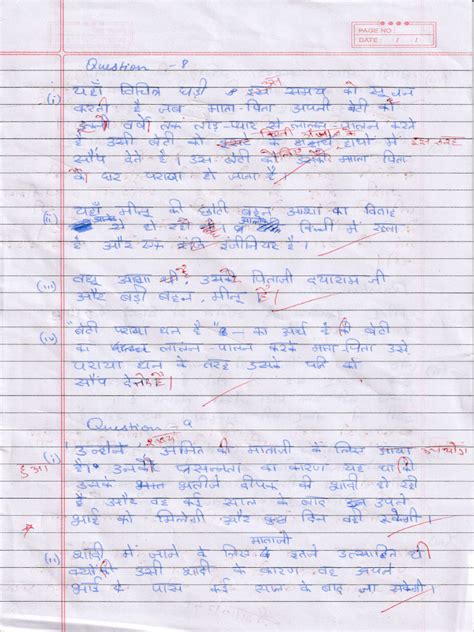 PAGE NO
DATE : / /
Question - 8
(i) यहाँ विचित्र घड़ी इस समय को सूचन
करती है जब माता-पिता अपनी बेटी को
वर्षों तक लाड़-प्यार से लालन-पालन करते
है उसी बेटी को हाथों में इस तरह
सौंप देते है। उस बेटी को उसके माता पिता
का द्वार पराया हो जाता है।
(ii) यहाँ मीनू की छोटी बहन आशा का विवाह
हो रहा में रहता
है और एक इंजीनियर है।
(iii) वधू आशा थी, उसके पिताजी दयाराम जी
और बड़ी बहन, मीनू है।
(iv) "बेटी पराया धन है" - का अर्थ है की बेटी
का लालन-पालन करके माता-पिता उसे
पराया धन के तरह उसके पति को
सौंप देते है।
Question - 9
(i) उन्होंने, अमित की माताजी के लिए आया
हुआ
है। उनकी प्रसन्नता का कारण यह था कि
उसके भतीजे दीपक की शादी हो रही
है और वह कई साल के बाद अपने
भाई को मिलेगी और कुछ दिन वही रुकेगी।
माताजी
(ii) शादी में जाने के लिए इतने उत्साहित थी
क्योंकी उसी शादी के कारण वह अपने
भाई के पास कई साल के बाद जा सकेगी।